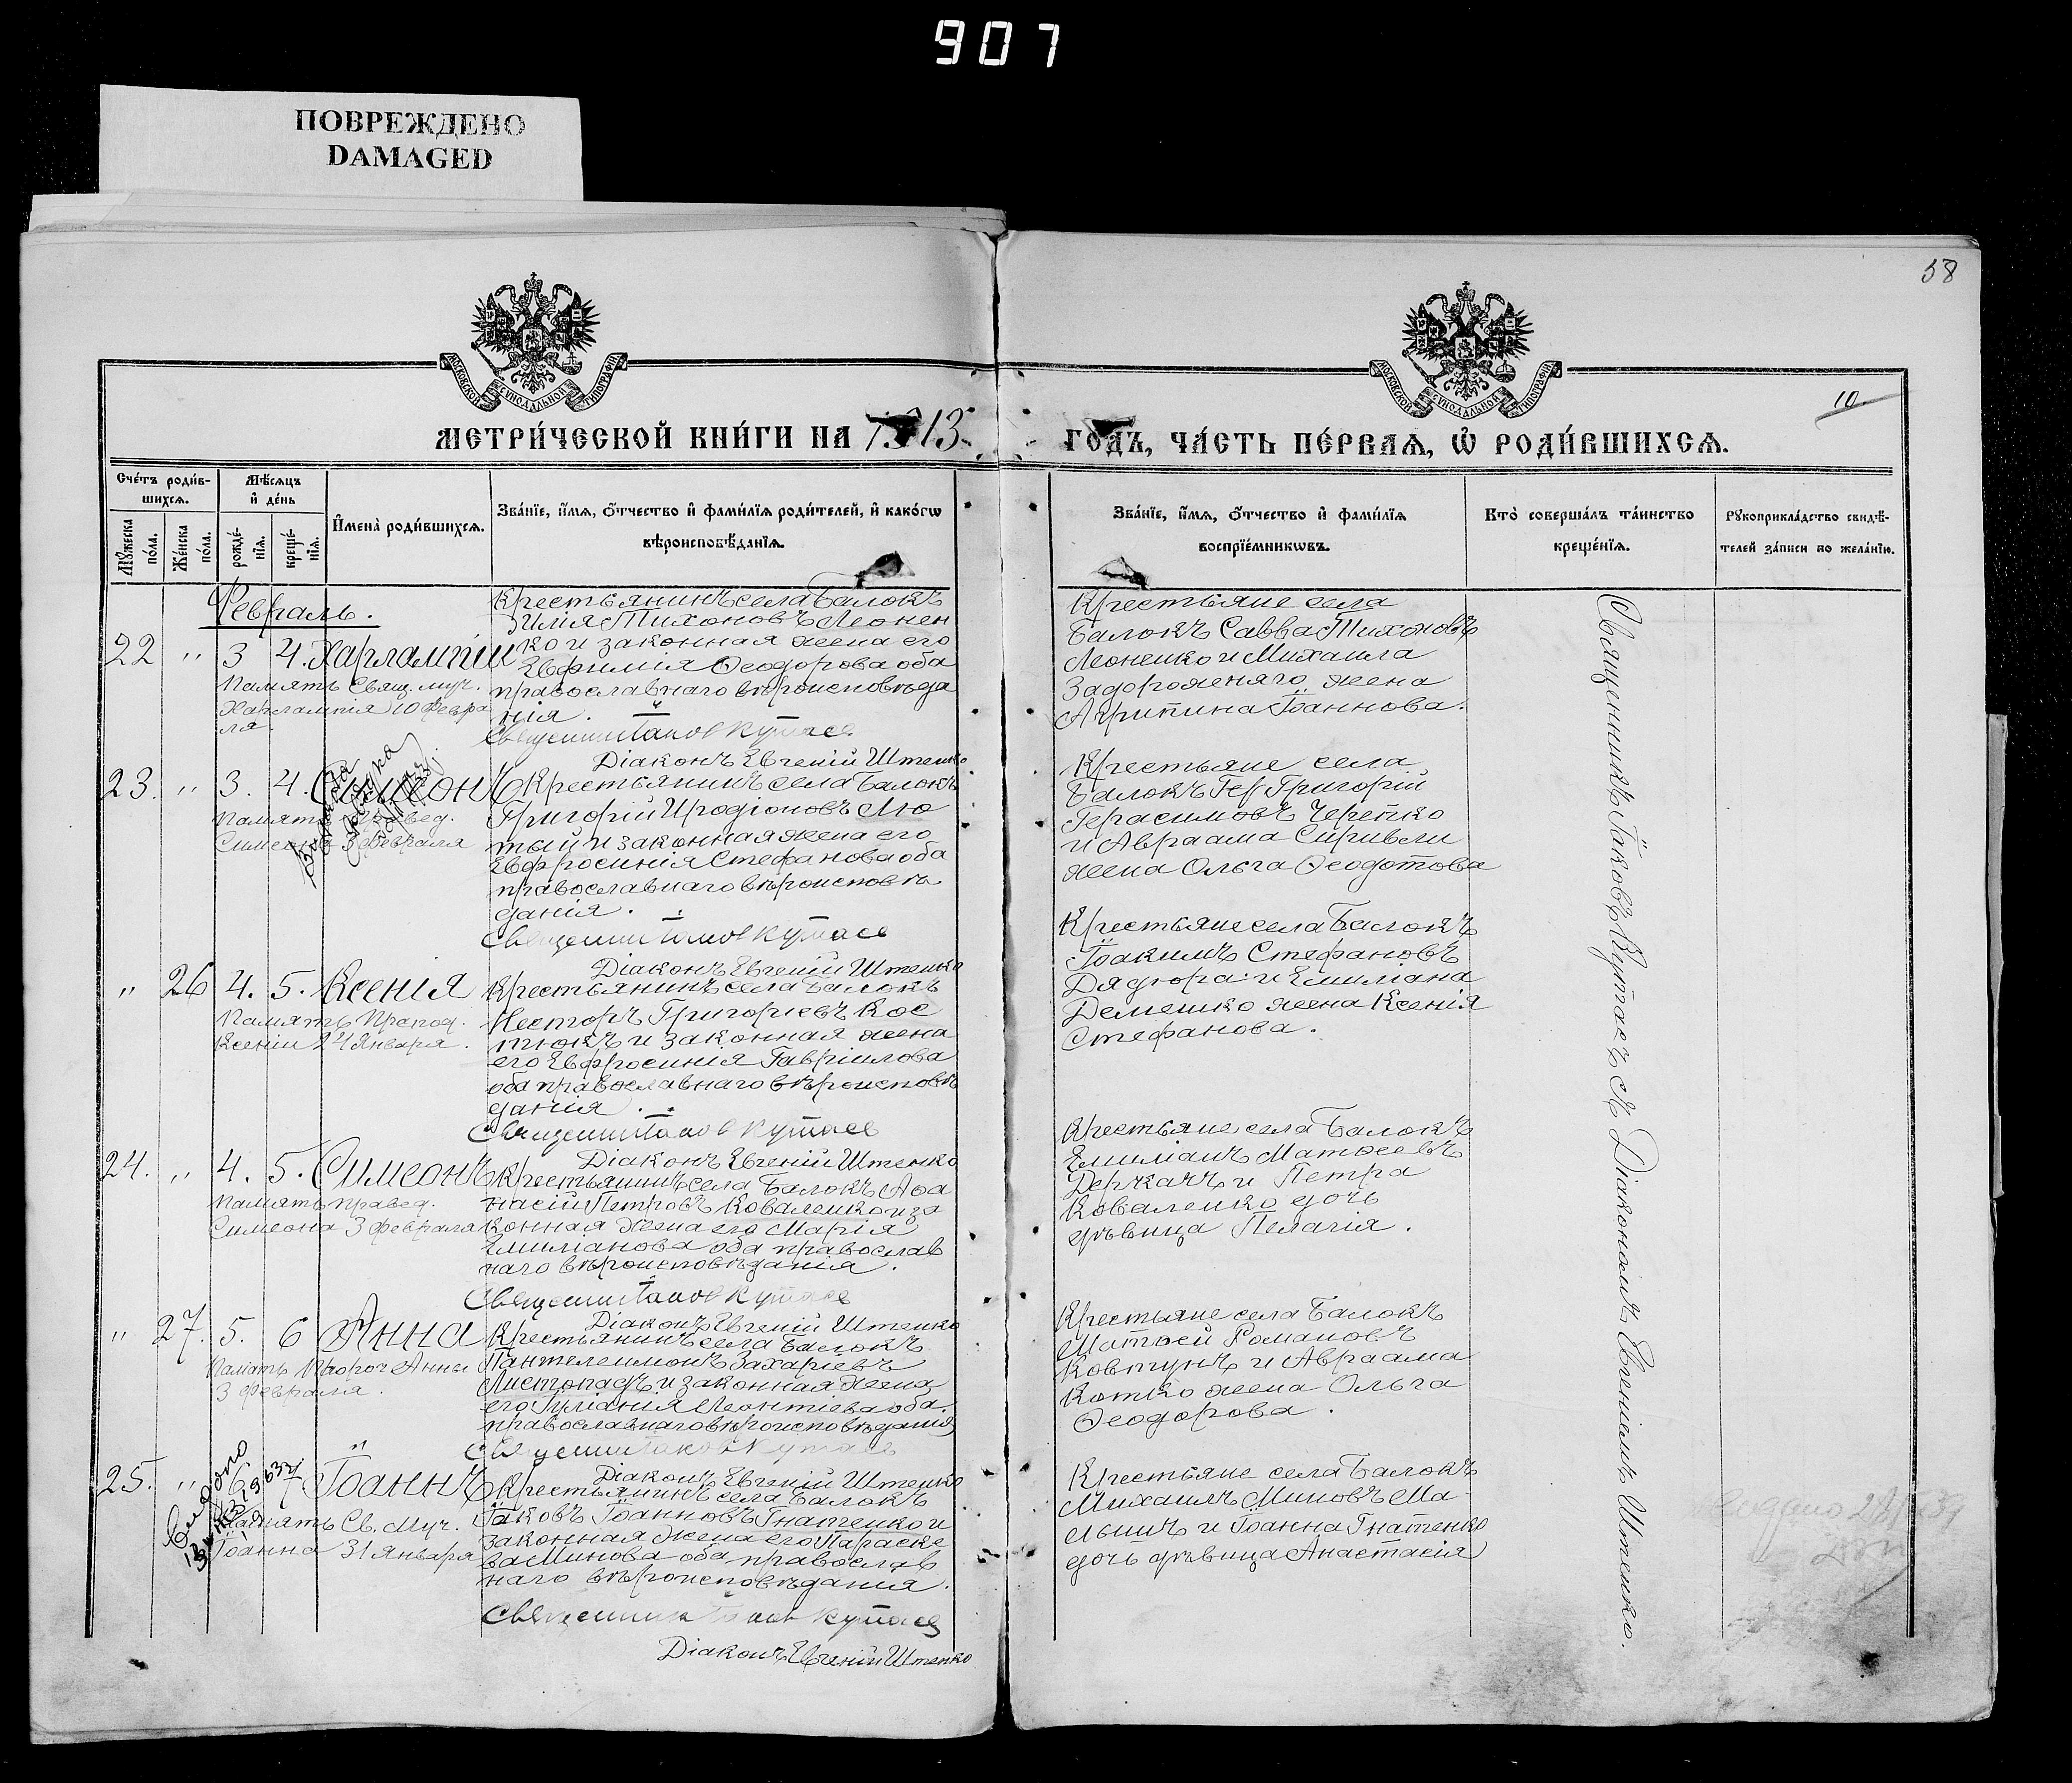 907
ПОВРЕЖДЕНО
DAMAGED
58
10.
МОСКОВСКОЙ СѴНОДАЛЬНОЙ ТИПОГРАФІИ
МОСКОВСКОЙ СѴНОДАЛЬНОЙ ТИПОГРАФІИ
МЕТРИ́ЧЕСКОЙ КНИ́ГИ НА 1913.
ГОДЪ, ЧА́СТЬ ПЕ́РВАѦ, Ѡ҆ РОДИ́ВШИХСѦ.
Сче́тъ роди́в-
шихсѧ.
Мѣ́сѧцъ
и҆ де́нь
Мꙋ́жеска
по́ла.
Же́нска
по́ла.
рожде́-
нїѧ.
креще́-
нїѧ.
И҆мена̀ роди́вшихсѧ.
Зва́нїе, и҆́мѧ, ѻ҆́тчество и҆ фами́лїѧ роди́телей, и҆ како́гѡ
вѣроисповѣ́данїѧ.
Зва́нїе, и҆́мѧ, ѻ҆́тчество и҆ фами́лїѧ
воспрїе́мникѡвъ.
Кто̀ соверша́лъ та́инство
креще́нїѧ.
Рꙋкоприкла́дство свидѣ́-
телей за́писи по жела́нїю.
Февраль.
22 " 3 4. Харлампій
Память Свящ. муч.
Харлампія 10 Февра
ля.
Крестьянинъ села Балокъ
Илія Тихоновъ Леонен
ко и законная жена его
Евфимія Ѳеодорова оба
православнаго вѣроисповѣда
нія.
Священник Іаков Кутасев
Діаконъ Евгеній Штенко
Крестьяне села
Балокъ Савва Тихоновъ
Леоненко и Михаила
Задорожняго жена
Агрипина Іоаннова.
23. " 3. 4. Симеонъ
Память Правед.
Симеона 3 февраля
Крестьянинъ села Балокъ
Григорій Иродіоновъ Лю
тый и законная жена его
Евфросинія Стефанова оба
православнаго вѣроисповѣ
данія.
Священник Іаков Кутасев
Діаконъ Евгеній Штенко
Крестьяне села
Балокъ Гер Григорій
Герасимовъ Черепко
и Авраама Сиривли
жена Ольга Ѳеодотова
" 26 4. 5. Ксенія
Память Препод.
Ксеніи 24 Января.
Крестьянинъ села Балокъ
Несторъ Григоріевъ Кос
тюкъ и законная жена
его Евфросинія Гавріилова
оба православнаго вѣроисповѣ
данія.
Священник Іаков Кутасев
Діаконъ Евгеній Штенко
Крестьяне села Балокъ
Іоакимъ Стефановъ
Дядюра и Емиліана
Демешко жена Ксенія
Стефанова.
24. " 4. 5. Симеонъ
Память правед.
Симеона 3 февраля
Крестьянинъ села Балокъ Аѳа
насій Петровъ Коваленко и за
конная жена его Марія
Емиліанова оба православ
наго вѣроисповѣданія.
Священник Іаков Кутасев
Діаконъ Евгеній Штенко
Крестьяне села Балокъ
Емиліанъ Матѳеевъ
Деркачъ и Петра
Коваленко дочь
дѣвица Пелагія.
" 27. 5. 6 Анна
Память Пророч Анны
3 Февраля.
Крестьянинъ села Балокъ
Пантелеимонъ Захаріевъ
Листопадъ и законная жена
его Іуліанія Леонтіева оба
православнаго вѣроисповѣданія
Священник Іаков Кутасев
Діаконъ Евгеній Штенко
Крестьяне села Балокъ
Матѳей Романовъ
Ковтунъ и Авраама
Котко жена Ольга
Ѳеодорова.
25. " 6. 7 Іоаннъ
Память Св. Муч.
Іоанна 31 Января
Крестьянинъ села Балокъ
Іаковъ Іоанновъ Гнатенко и
законная жена его Параске
ва Минова оба православ
наго вѣроисповѣданія.
Священник Іаков Кутасев
Діаконъ Евгеній Штенко
Крестьяне села Балокъ
Михаилъ Миновъ Ма
лышъ и Іоанна Гнатенко
дочь дѣвица Анастасія
Священникъ Іаковъ Кутасевъ съ Діакономъ Евгеніемъ Штенко.